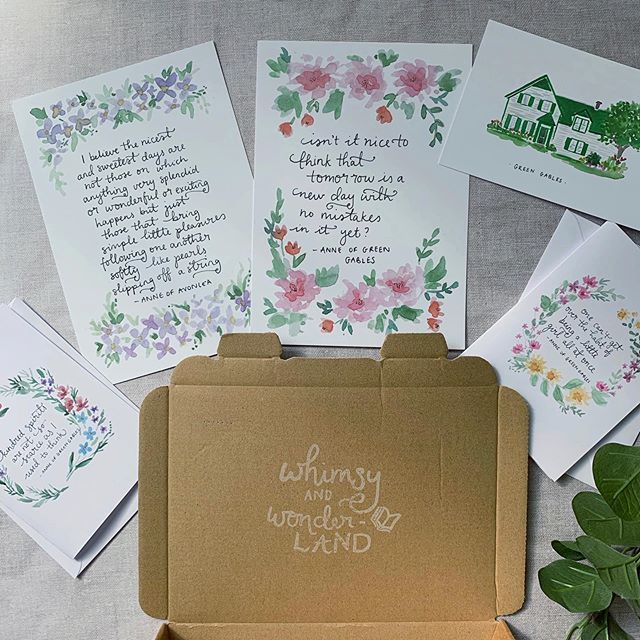 I believe the nicest
and sweetest days are
not those on which
anything very splendid
or wonderful or exciting
happens but just
those that bring
simple little pleasures
following one another
softly like pearls
slipping off a string
- ANNE OF AVONLEA
isn't it nice to
think that
tomorrow is a
new day with
no mistakes
in it yet?
- ANNE OF GREEN
GABLES
· GREEN GABLES ·
one can't get
over the habit of
being a little
girl all at once
- ANNE OF GREEN GABLES
kindred spirits
are not so
scarce as
used to think
ANNE OF GREEN GABLES
whimsy
AND
wonder-
LAND